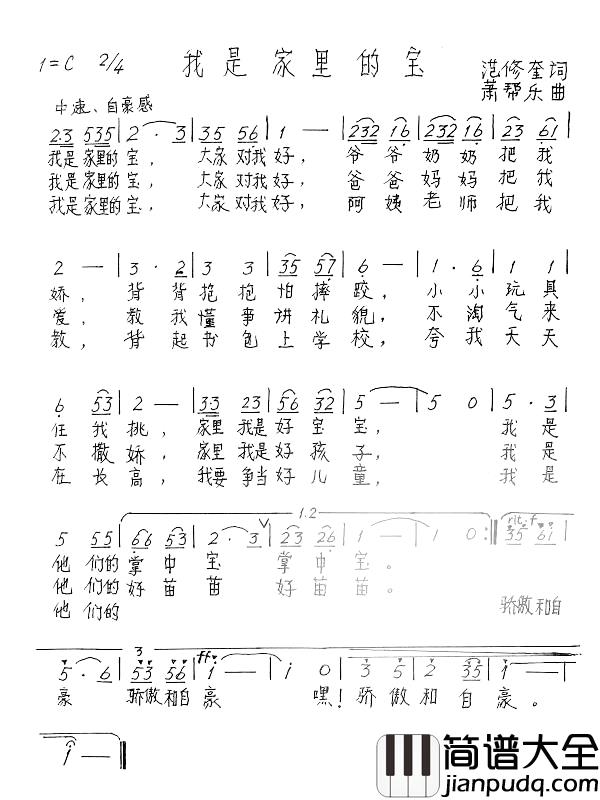 1=C 2/4 我是家里的宝 范修奎词
萧帮乐曲
中速、自豪感
2·3 535 | 2 · 3 | 35 56 | 1 — | 232 16 | 232 16 | 23 61 |
我是家里的宝， 大家对我好， 爷爷奶奶把我
我是家里的宝， 大家对我好， 爸爸妈妈把我
我是家里的宝， 大家对我好， 阿姨老师把我
2 — | 3 · 2 | 3 3 | 35 57 | 6 — | 1 · 6 | 1 1 |
娇， 背背抱抱怕摔跤， 小小玩具
爱， 教我懂事讲礼貌， 不淘气来
教， 背起书包上学校， 夸我天天
6 53 | 2 — | 33 23 | 56 32 | 5 — | 5 0 | 5 · 3 |
任我挑， 家里我是好宝宝， 我是
不撒娇， 家里我是好孩子， 我是
在长高， 我要争当好儿童， 我是
1.2
rit. f
5 55 | 66 53 | 2 · 3 | 23 26 | 1 — | 1 0 :| 35 61 |
他们的掌中宝 掌中宝。
他们的好苗苗 好苗苗。
他们的 骄傲和自
3
ff
5 · 6 | 53 56 | i — | i 0 | 3 5 | 5 6 | 5 — |
豪 骄傲和自豪 嘿！骄傲和自豪。
i — ||
简谱大全
jianpudq.com